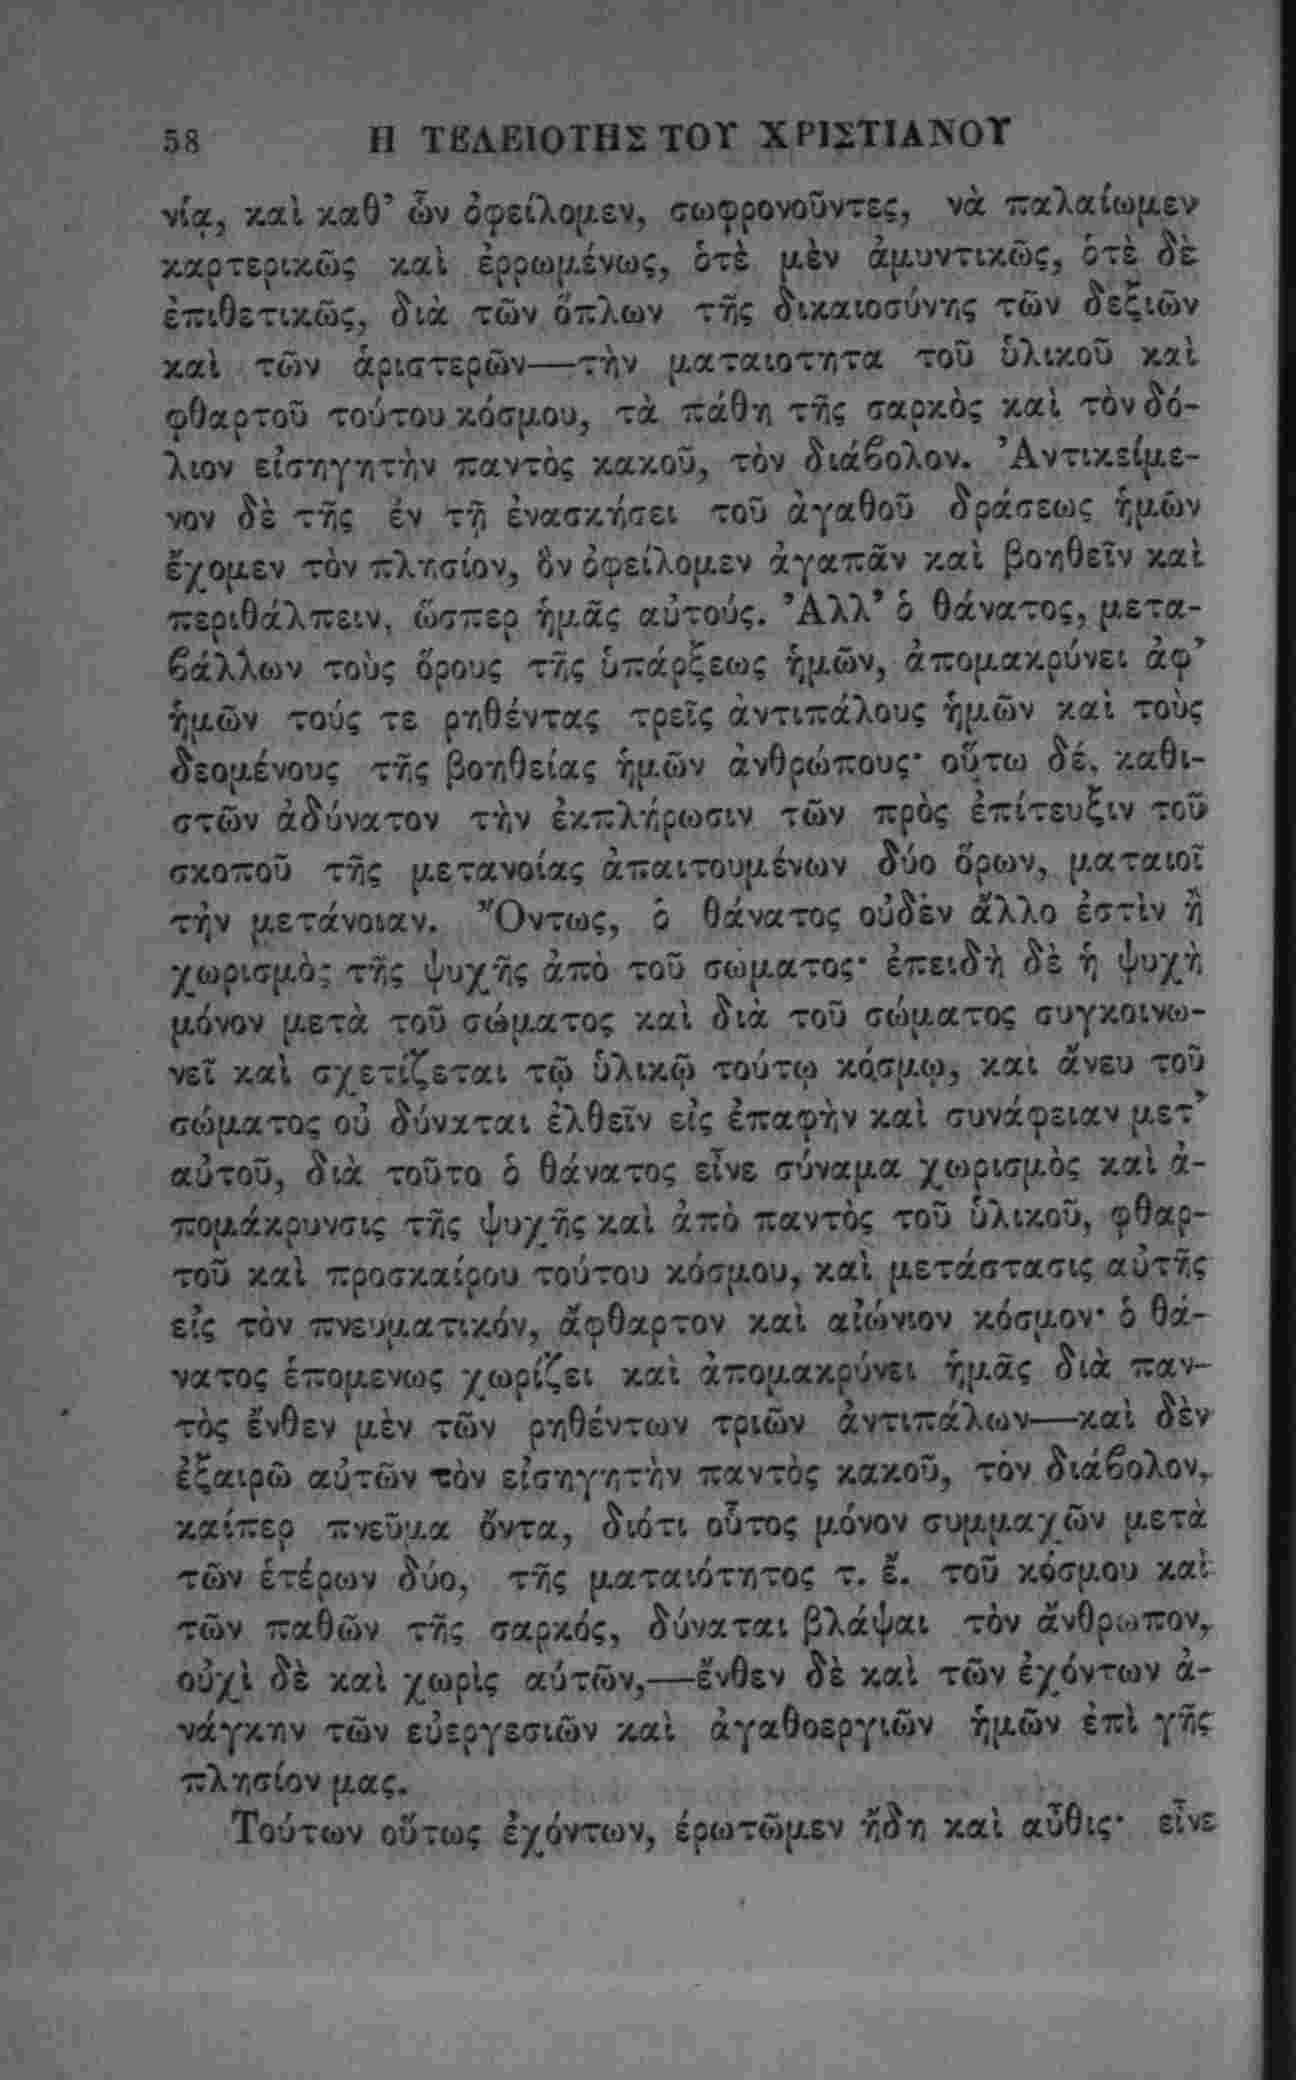 58 Η ΤΕΛΕΙΟΤΗΣ ΤΟΥ ΧΡΙΣΤΙΑΝΟΥ
νίᾳ, καὶ καθ’ ὧν ὀφείλομεν, σωφρονοῦντες, νὰ παλαίωμεν
καρτερικῶς καὶ ἐρρωμένως, ὁτὲ μὲν ἀμυντικῶς, ὁτὲ δὲ
ἐπιθετικῶς, διὰ τῶν ὅπλων τῆς δικαιοσύνης τῶν δεξιῶν
καὶ τῶν ἀριστερῶν—τὴν ματαιοτητα τοῦ ὑλικοῦ καὶ
φθαρτοῦ τούτου κόσμου, τὰ πάθη τῆς σαρκὸς καὶ τὸν δό-
λιον εἰσηγητὴν παντὸς κακοῦ, τὸν διάβολον. Ἀντικείμε-
νον δὲ τῆς ἐν τῇ ἐνασκήσει τοῦ ἀγαθοῦ δράσεως ἡμῶν
ἔχομεν τὸν πλησίον, ὃν ὀφείλομεν ἀγαπᾶν καὶ βοηθεῖν καὶ
περιθάλπειν, ὥσπερ ἡμᾶς αὐτούς. Ἀλλ’ ὁ θάνατος, μετα-
βάλλων τοὺς ὅρους τῆς ὑπάρξεως ἡμῶν, ἀπομακρύνει ἀφ’
ἡμῶν τούς τε ρηθέντας τρεῖς ἀντιπάλους ἡμῶν καὶ τοὺς
δεομένους τῆς βοηθείας ἡμῶν ἀνθρώπους· οὕτω δέ, καθι-
στῶν ἀδύνατον τὴν ἐκπλήρωσιν τῶν πρὸς ἐπίτευξιν τοῦ
σκοποῦ τῆς μετανοίας ἀπαιτουμένων δύο ὅρων, ματαιοῖ
τὴν μετάνοιαν. Ὄντως, ὁ θάνατος οὐδὲν ἄλλο ἐστὶν ἢ
χωρισμὸς τῆς ψυχῆς ἀπὸ τοῦ σώματος· ἐπειδὴ δὲ ἡ ψυχὴ
μόνον μετὰ τοῦ σώματος καὶ διὰ τοῦ σώματος συγκοινω-
νεῖ καὶ σχετίζεται τῷ ὑλικῷ τούτῳ κόσμῳ, καὶ ἄνευ τοῦ
σώματος οὐ δύναται ἐλθεῖν εἰς ἐπαφὴν καὶ συνάφειαν μετ’
αὐτοῦ, διὰ τοῦτο ὁ θάνατος εἶνε σύναμα χωρισμὸς καὶ ἀ-
πομάκρυνσις τῆς ψυχῆς καὶ ἀπὸ παντὸς τοῦ ὑλικοῦ, φθαρ-
τοῦ καὶ προσκαίρου τούτου κόσμου, καὶ μετάστασις αὐτῆς
εἰς τὸν πνευματικόν, ἄφθαρτον καὶ αἰώνιον κόσμον· ὁ θά-
νατος ἑπομενως χωρίζει καὶ ἀπομακρύνει ἡμᾶς διὰ παν-
τὸς ἔνθεν μὲν τῶν ρηθέντων τριῶν ἀντιπάλων—καὶ δὲν
ἐξαιρῶ αὐτῶν τὸν εἰσηγητὴν παντὸς κακοῦ, τὸν διάβολον,
καίπερ πνεῦμα ὄντα, διότι οὗτος μόνον συμμαχῶν μετὰ
τῶν ἑτέρων δύο, τῆς ματαιότητος τ. ἔ. τοῦ κόσμου καὶ
τῶν παθῶν τῆς σαρκός, δύναται βλάψαι τὸν ἄνθρωπον,
οὐχὶ δὲ καὶ χωρὶς αὐτῶν,—ἔνθεν δὲ καὶ τῶν ἐχόντων ἀ-
νάγκην τῶν εὐεργεσιῶν καὶ ἀγαθοεργιῶν ἡμῶν ἐπὶ γῆς
πλησίον μας.
Τούτων οὕτως ἐχόντων, ἐρωτῶμεν ἤδη καὶ αὖθις· εἶνε